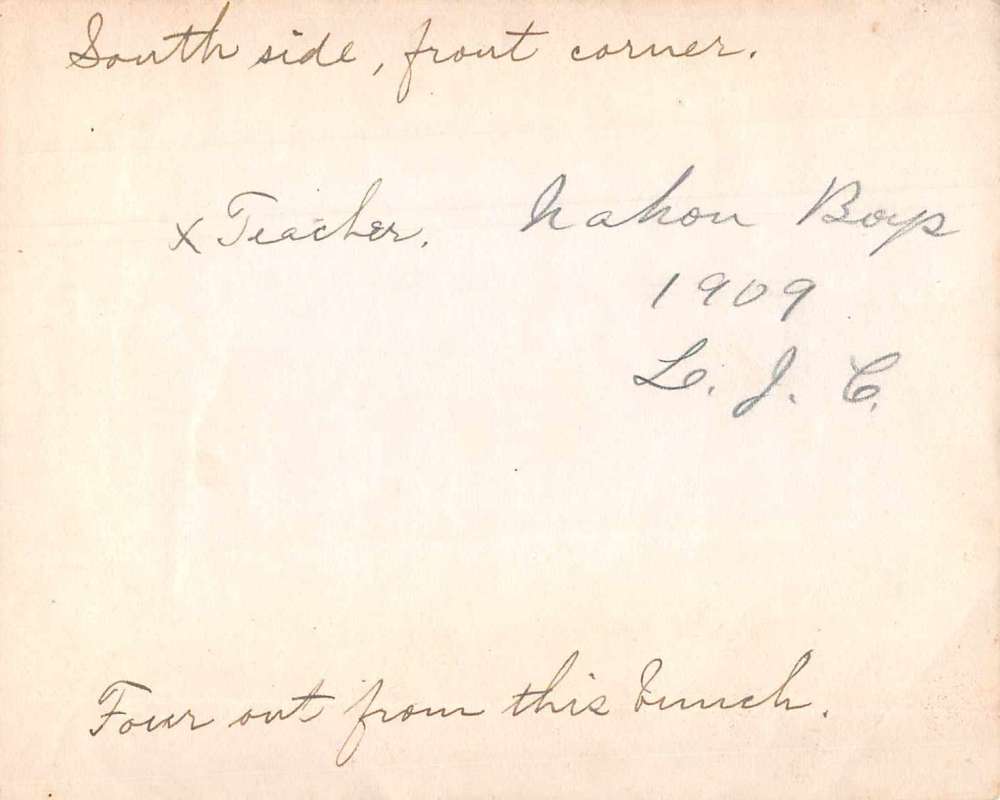 South side, front corner.
x Teacher. Nahon Boys
1909
L. J. C.
Four out from this bunch.